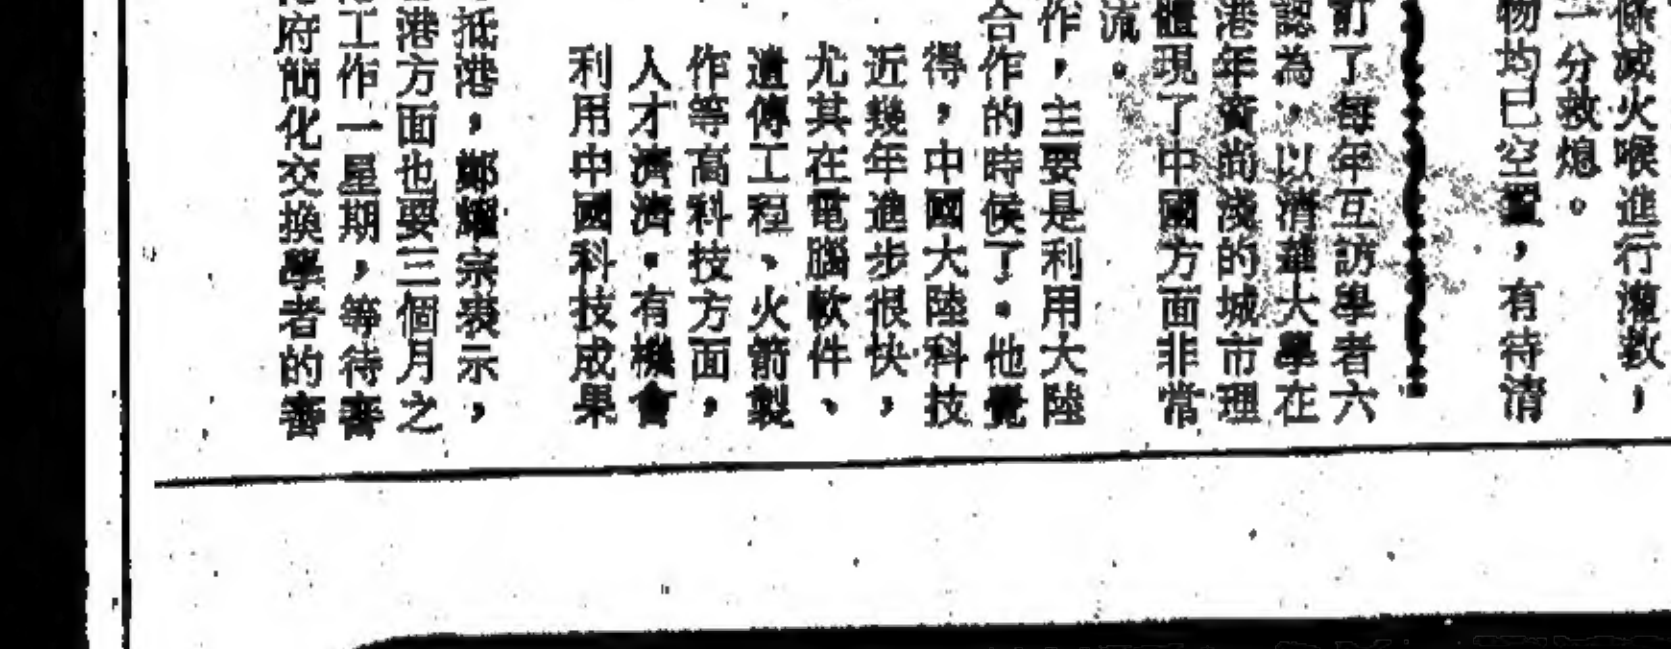 條滅火喉進行灌救，
一分救熄。
物均已空置，有待清
訂了每年互訪學者六
認為，以清華大學在
港年資尚淺的城市理
體現了中國方面非常
流。
作，主要是利用大陸
合作的時候了。他覺
得，中國大陸科技
近幾年進步很快，
尤其在電腦軟件、
遺傳工程、火箭製
作等高科技方面，
人才濟濟。有機會
利用中國科技成果
抵港，鄭耀宗表示，
港方面也要三個月之
工作一星期，等待審
府簡化交換學者的審